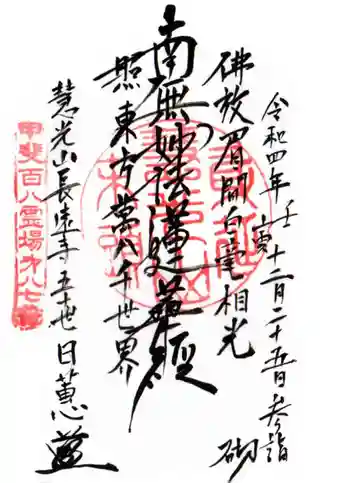 令和四年壬寅十二月二十五日参詣
佛放眉間白毫相光
砌
南無妙法蓮華経
照東方萬八千世界
慧光山長遠寺五十世日蕙
甲斐百八霊場第八七番